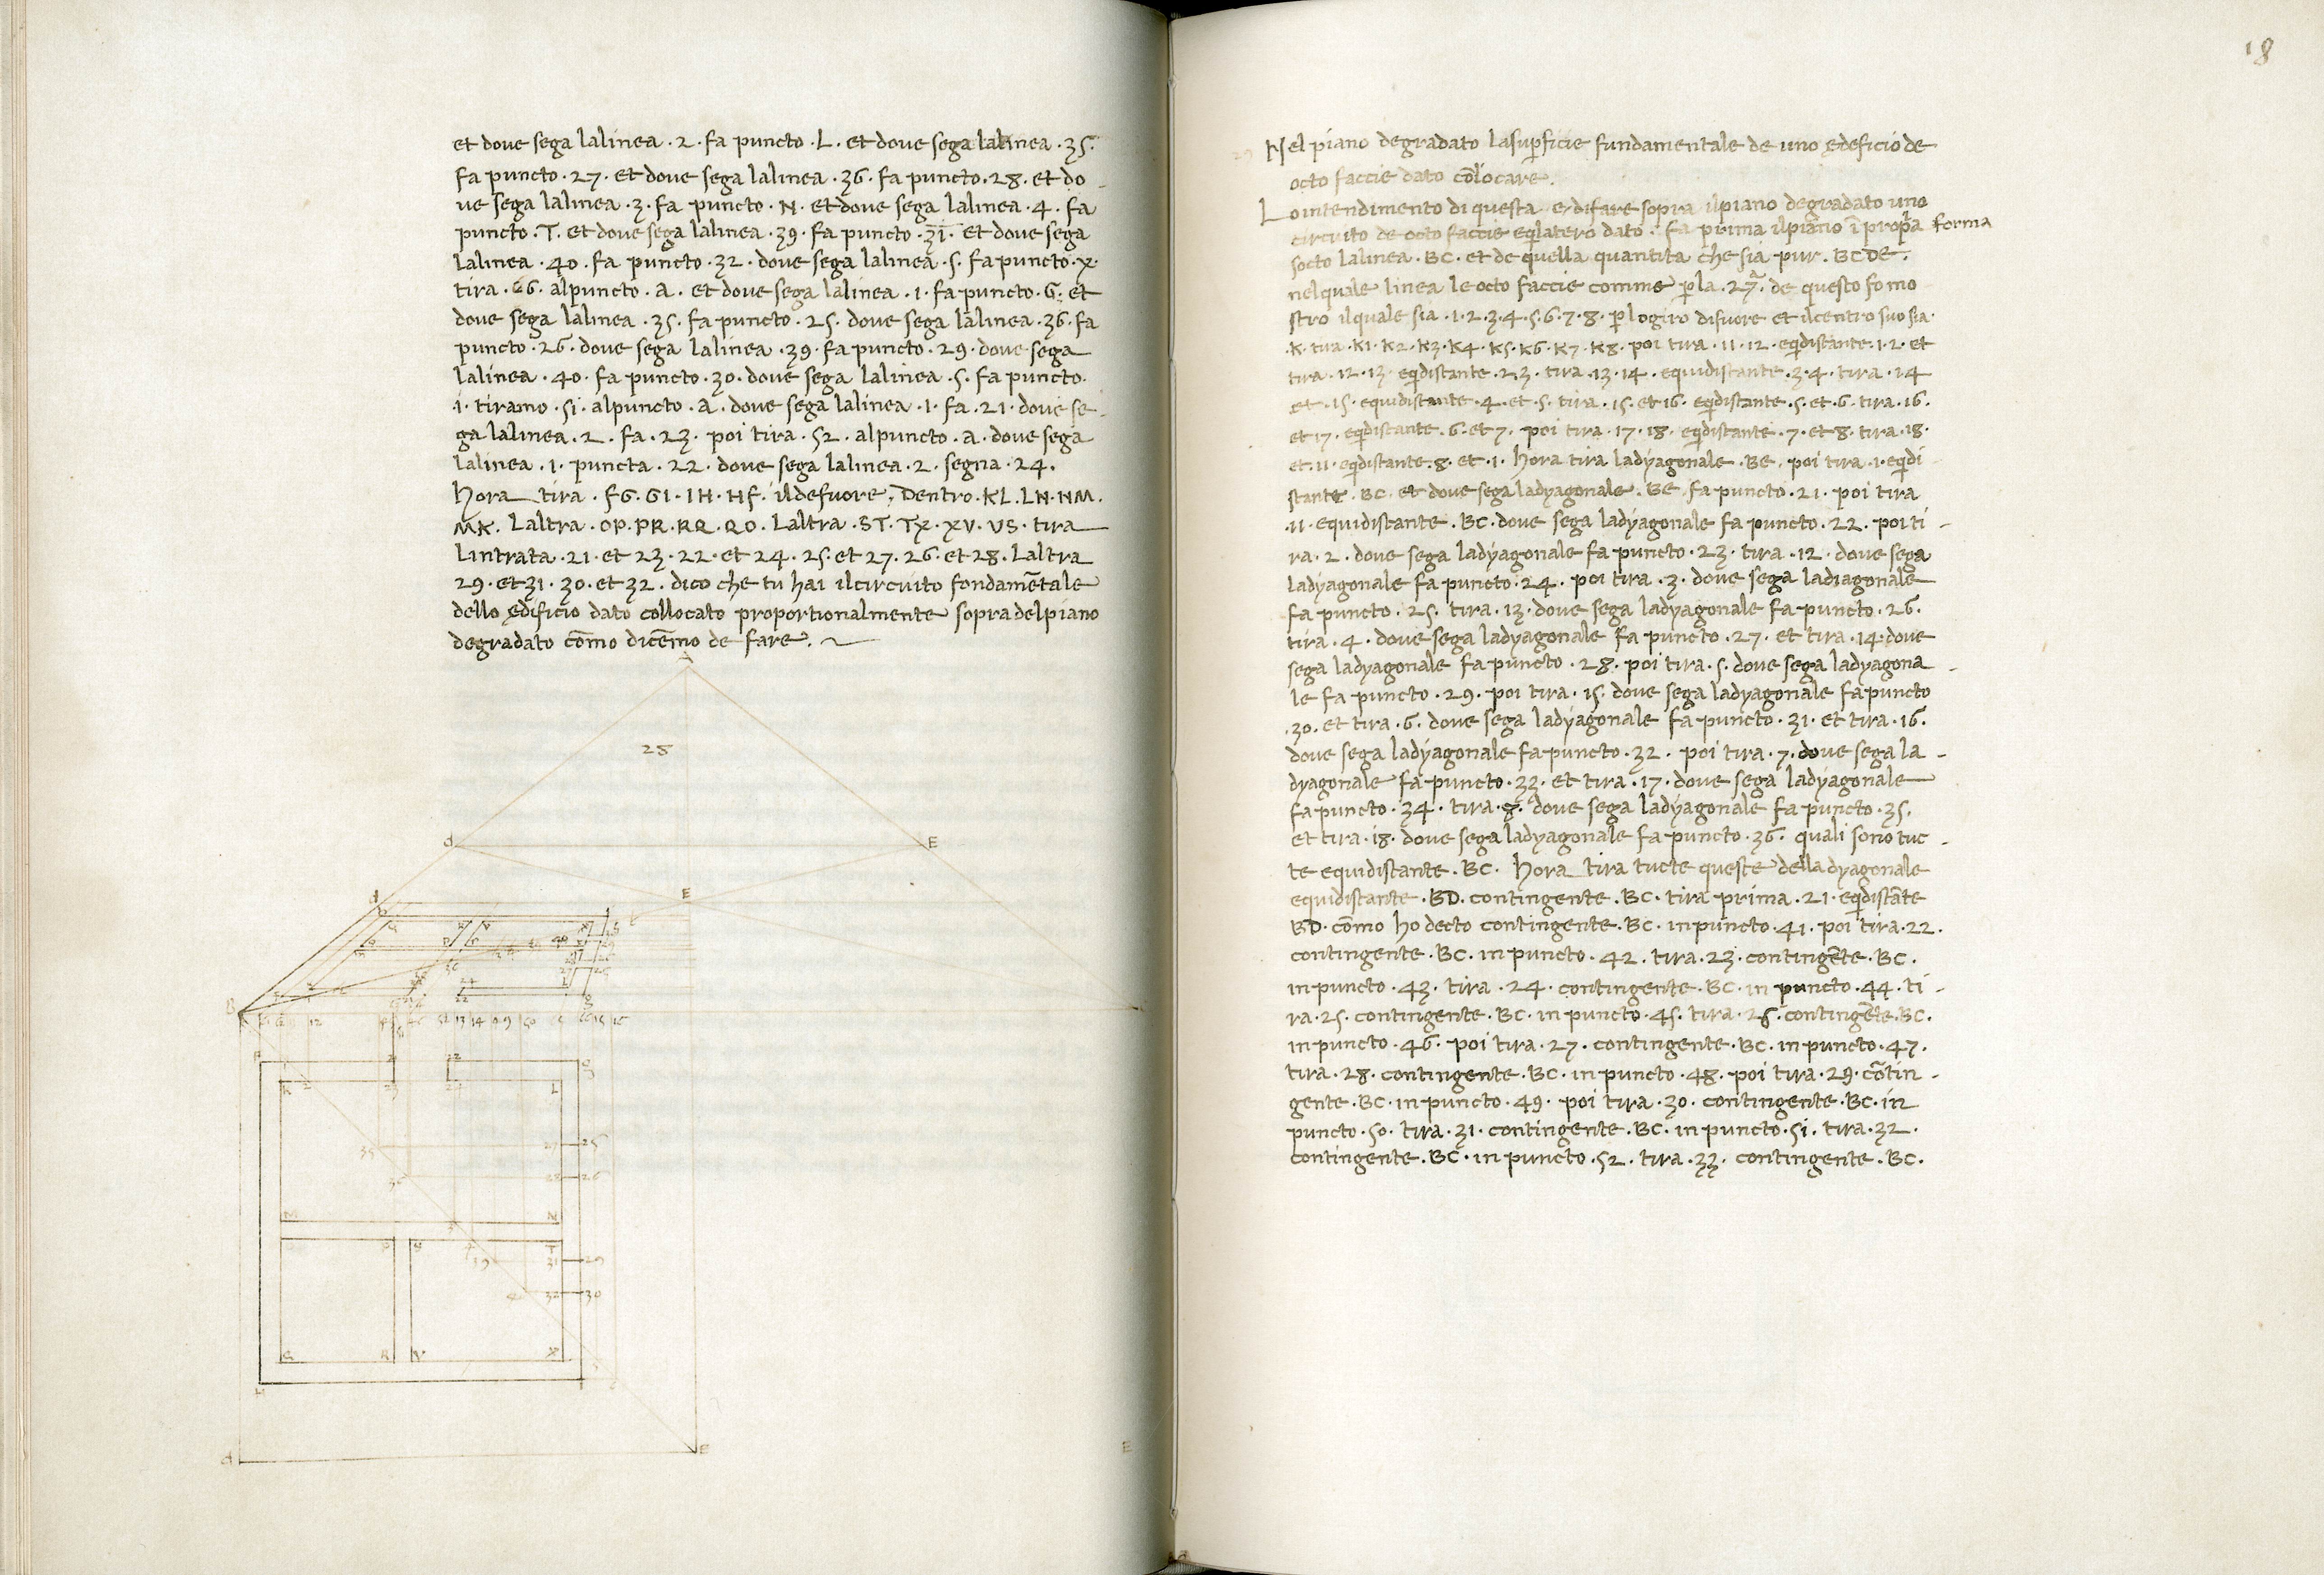 et dove sega lalinea . 2 . fa puncto . L . et dove sega lalinea . 35 .
fa puncto . 27 . et dove sega lalinea . 36 . fa puncto . 28 . et do -
ve sega lalinea . 3 . fa puncto . N . et dove sega lalinea . 4 . fa
puncto . T . et dove sega lalinea . 39 . fa puncto . 31 . et dove sega
lalinea . 40 . fa puncto . 32 . dove sega lalinea . 5 . fa puncto . X .
tira . 66 . alpuncto . A . et dove sega lalinea . 1 . fa puncto . G . et
dove sega lalinea . 35 . fa puncto . 25 . dove sega lalinea . 36 . fa
puncto . 26 . dove sega lalinea . 39 . fa puncto . 29 . dove sega
lalinea . 40 . fa puncto . 30 . dove sega lalinea . 5 . fa puncto .
i . tiramo . 51 . alpuncto . A . dove sega lalinea . 1 . fa . 21 . dove se -
ga lalinea . 2 . fa . 23 . poi tira . 52 . alpuncto . A . dove sega
lalinea . 1 . puncta . 22 . dove sega lalinea . 2 . segna . 24 .
hora tira . FG . GI . IH . HF . ildefuore . Dentro . KL . LN . NM .
MK . Laltra . OP . PR . RQ . QO . Laltra . ST . TX . XV . VS . tira
Lintrata . 21 . et 23 . 22 . et 24 . 25 . et 27 . 26 . et 28 . Laltra
29 . et 31 . 30 . et 32 . dico che tu hai ilcircuito fondamẽtale
dello edificio dato collocato proportionalmente sopra delpiano
degradato cõmo dicẽmo de fare .
28
d E
E
B
K L
35 27 25
36 28 26
M N
T
31 29
32 30
R V X
H
d E
E
18
29 Nel piano degradato lasuꝑficie fundamentale de uno edeficio de
octo faccie dato cõlocare .
Lo intendimento di questa e difare sopra ilpiano degradato uno
circuito de octo faccie eq̃latero dato . fa prima ilpiano ĩ propͣa forma
socto lalinea . BC . et de quella quantita che sia pur . BCDE .
nelquale linea le octo faccie comme ꝑ la . 27ͣ . de questo fo mo
stro ilquale sia . 1 . 2 . 3 . 4 . 5 . 6 . 7 . 8 . ꝑ logiro difuore et ilcentro suo sia .
. K . tira . K1 . K2 . K3 . K4 . K5 . K6 . K7 . K8 . poi tira . 11 . 12 . eq̃distante . 1 . 2 . et
tira . 12 . 13 . eq̃distante . 2 . 3 . tira . 13 . 14 . equidistante . 3 . 4 . tira . 14
et . 15 . equidistante . 4 . et . 5 . tira . 15 . et 16 . eq̃distante . 5 . et . 6 . tira . 16 .
et 17 . eq̃distante . 6 . et 7 . poi tira . 17 . 18 . eq̃distante . 7 . et 8 . tira . 18 .
et . 11 . eq̃distante . 8 . et . 1 . hora tira ladyagonale . BE . poi tira . 1 . eq̃di
stante . BC . et dove sega ladyagonale . BE . fa puncto . 21 . poi tira
. 11 . equidistante . BC . dove sega ladyagonale fa puncto . 22 . poi ti -
ra . 2 . dove sega ladyagonale fa puncto . 23 . tira . 12 . dove sega
ladyagonale fa puncto . 24 . poi tira . 3 . dove sega ladiagonale
fa puncto . 25 . tira . 13 . dove sega ladyagonale fa puncto . 26 .
tira . 4 . dove sega ladyagonale fa puncto . 27 . et tira . 14 . dove
sega ladyagonale fa puncto . 28 . poi tira . 5 . dove sega ladyagona -
le fa puncto . 29 . poi tira . 15 . dove sega ladyagonale fa puncto
. 30 . et tira . 6 . dove sega ladyagonale fa puncto . 31 . et tira . 16 .
dove sega ladyagonale fa puncto . 32 . poi tira . 7 . dove sega la -
dyagonale fa puncto . 33 . et tira . 17 . dove sega ladyagonale
fa puncto . 34 . tira . 8 . dove sega ladyagonale fa puncto . 35 .
et tira . 18 . dove sega ladyagonale fa puncto . 36 . quali sono tuc -
te equidistante . BC . hora tira tucte queste della dyagonale
equidistante . BD . contingente . BC . tira prima . 21 . eq̃distãte
BD . cõmo ho decto contingente . BC . inpuncto . 41 . poi tira . 22 .
contingente . BC . in puncto . 42 . tira . 23 . contingẽte . BC .
in puncto . 43 . tira . 24 . contingente . BC . in puncto . 44 . ti -
ra . 25 . contingente . BC . in puncto . 45 . tira . 26 . contingẽte . BC .
in puncto . 46 . poi tira . 27 . contingente . BC . in puncto . 47 .
tira . 28 . contingente . BC . in puncto . 48 . poi tira . 29 . cõtin -
gente . BC . in puncto . 49 . poi tira . 30 . contingente . BC . in
puncto . 50 . tira . 31 . contingente . BC . in puncto . 51 . tira . 32 .
contingente . BC . in puncto . 52 . tira . 33 . contingente . BC .